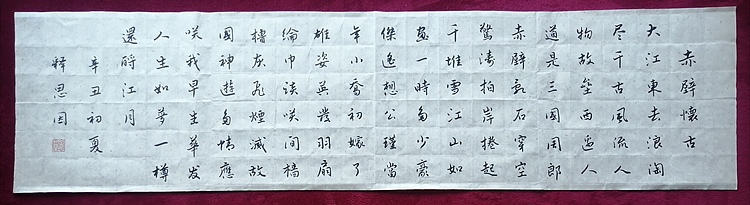 赤壁懷古
大江東去浪淘
尽千古風流人
物故壘西邊人
道是三國周郎
赤壁乱石穿空
驚濤拍岸捲起
千堆雪江山如
畫一時多少豪
傑遙想公瑾當
年小喬初嫁了
雄姿英發羽扇
綸巾談咲間檣
櫓灰飛煙滅故
國神遊多情應
咲我早生華发
人生如夢一樽
還酹江月
辛丑初夏
釋思因